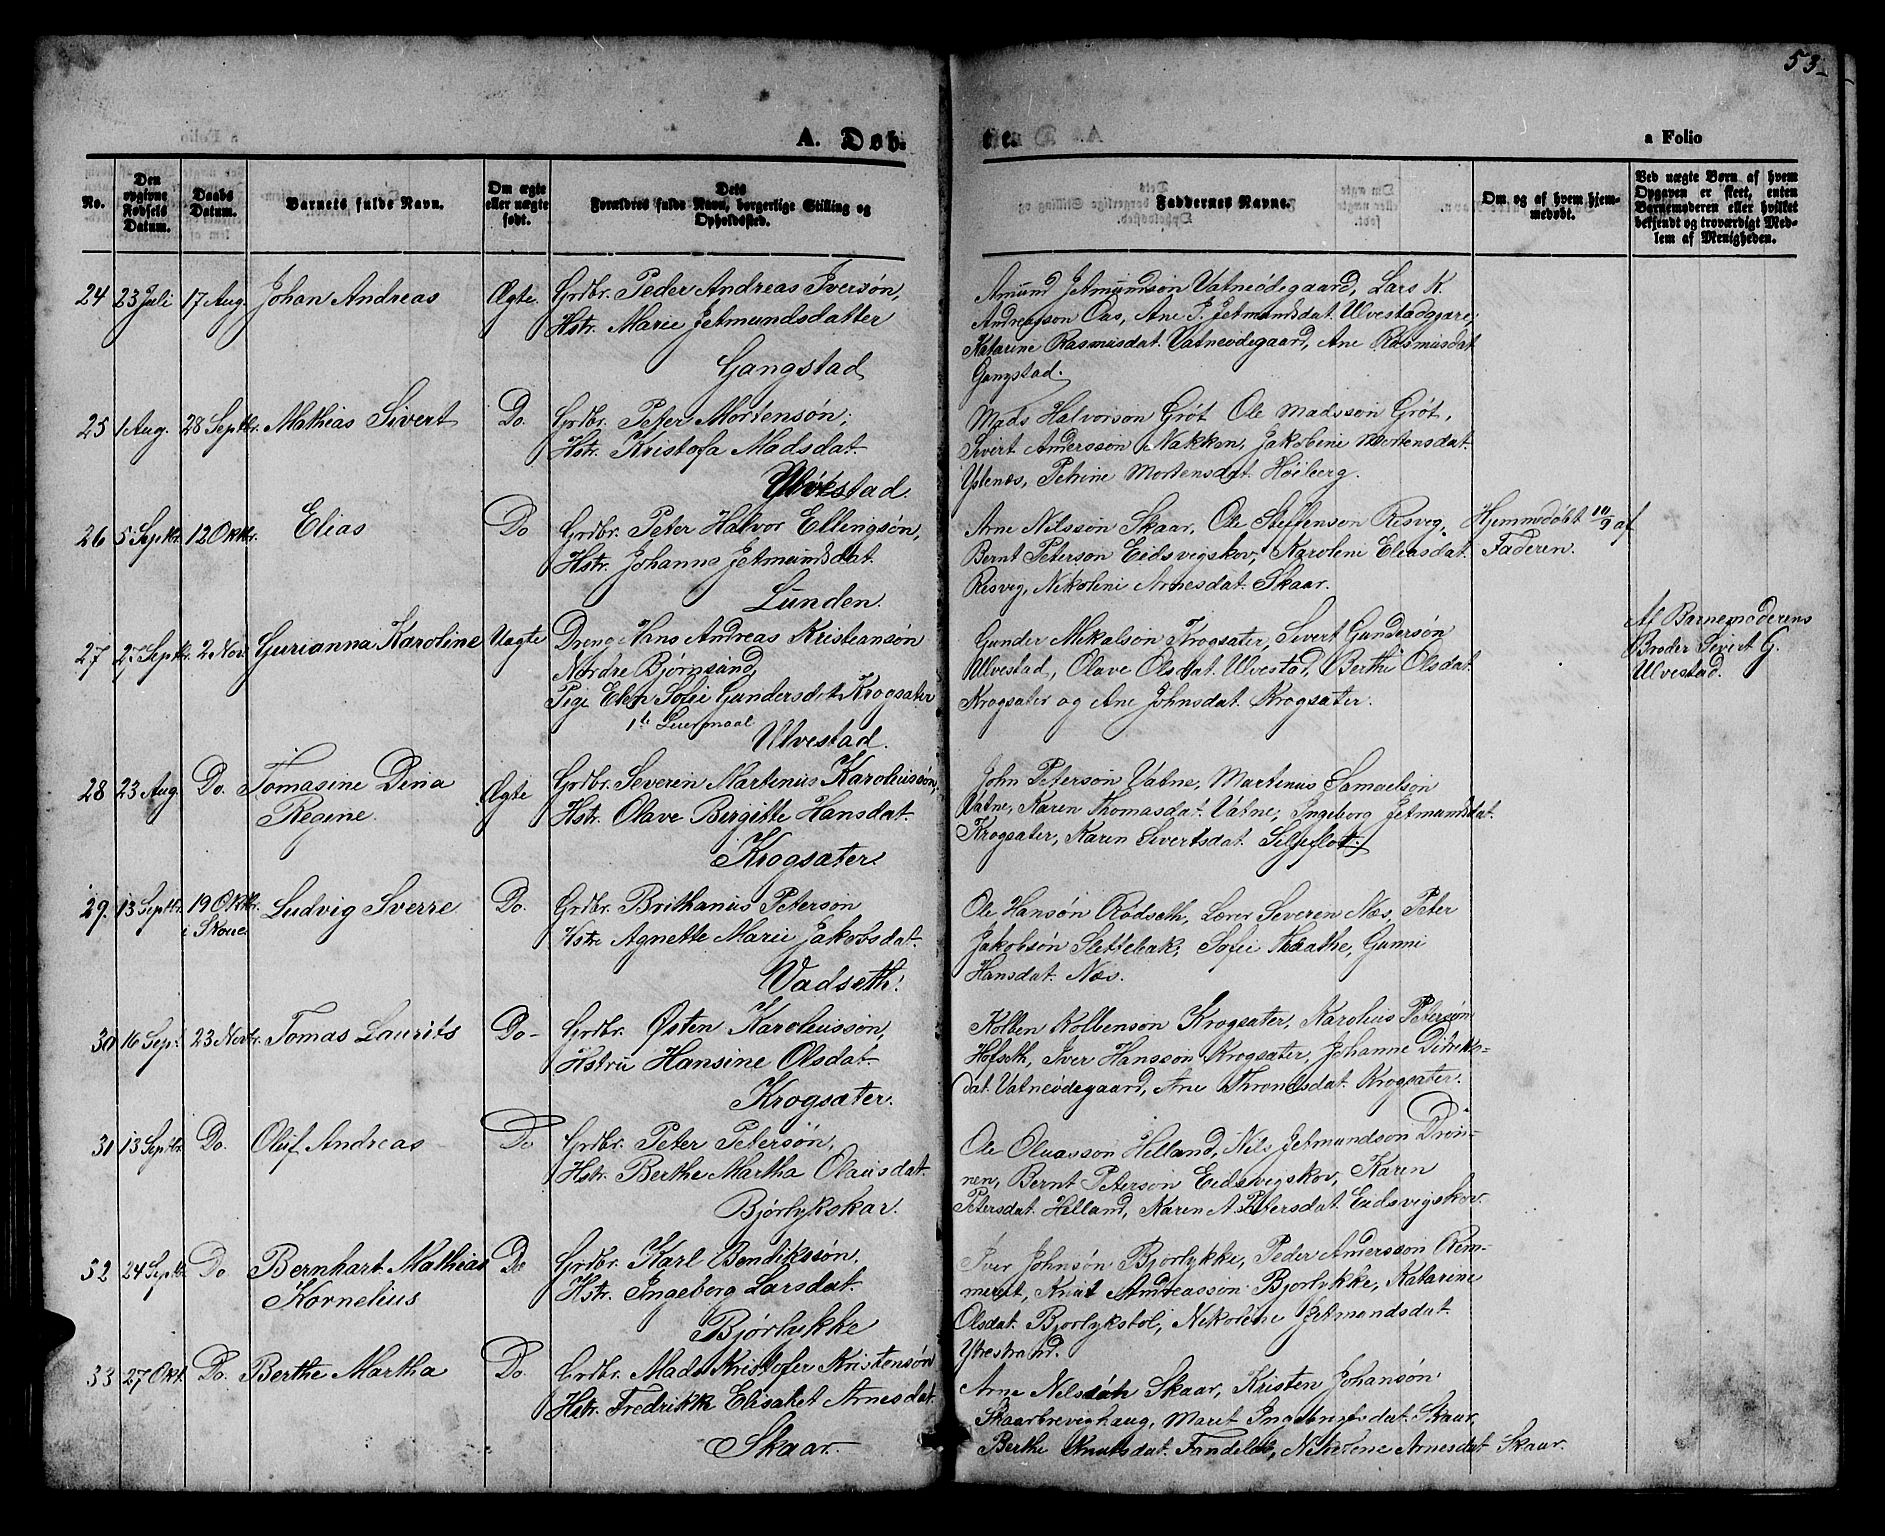 53
A. Døb-
te.
a Folio
No.
Den opgivne Fødsels Datum.
Daabs Datum.
Barnets fulde Navn.
Om ægte eller uægte født.
Dets Forældres fulde Navn, borgerlige Stilling og Opholdssted.
Faddernes Navne.
Om og af hvem hjemmedøbt.
Ved uægte Børn af hvem Opgaven er skeet, enten Barnemoderen eller hvilket bekjendt og troværdigt Medlem af Menigheden.
24 23 Juli 17 Aug. Johan Andreas Ægte. Grdbr. Peder Andreas Iversøn,
Hstr. Marie Jetmundsdatter
Gangstad
Amund Jetmundsøn Vatneødegaard, Lars K.
Andreasson Aas, Ane J. Jetmundsdat. Ulvestadgjære,
Katarine Rasmusdat. Vatneødegaard, Ane Rasmusdat
Gangstad.
25 1 Aug. 28 Septbr. Mathias Sivert Do. Grdbr. Peter Mortensøn,
Hstr. Kristofa Madsdat.
Ulvestad.
Mads Halvorson Grøt Ole Madsson Grøt,
Sivert Andersson Nakken, Jakobine Mortensdat.
Ystenæs, Petrine Mortensdat. Høiberg.
26 5 Septbr. 12 Oktbr. Elias Do Grdbr. Peter Halvor Ellingsøn,
Hstr. Johanna Jetmundsdat.
Lunden.
Arne Nilsson Skaar, Ole Steffensøn Resveg,
Bernt Petersøn Eidsvigskov, Karoline Eliasdat.
Resveg, Nikoline Arnesdat. Skaar.
Hjemmedøbt 10/9 af
Faderen.
27 27 Septbr. 2 Nov. Gurianna Karoline Uægte Dreng Hans Andreas Kristiansøn
Nordre Bjørnsund
Pige Elen Sofie Gundersdt. Krogsæter
1ste Leiermaal
Ulvestad.
Gunder Mikalson Krogsæter, Sivert Gundersøn
Ulvestad, Olave Olsdat. Ulvestad, Berthe Olsdat.
Krogsæter og Ane Johnsdat. Krogsæter.
Af Barnemoderens
Broder Sivert G.
Ulvestad.
28 23 Aug. Do. Tomasine Dina
Regine
Ægte Grdbr. Severin Martinus Karoliussøn,
Hstr. Olave Birgitte Hansdat.
Krogsæter.
John Petersøn Vatne, Martinus Samuelson
Vatne, Karen Thomasdat. Vatne, Ingeborg Jetmundsdat.
Krogsæter, Karen Sivertsdat. Siljeflot.
29. 13 Septbr. 19 Oktbr.
i Skoue.
Ludvig Sverre Do. Grdbr. Brithanus Peterson
Hstr. Agnette Marie Jakobsdat.
Vadseth.
Ole Hansøn Rødseth, Lærer Severin Næs, Peter
Jakobsøn Slettebak, Sofie, Gunni
Hansdat. Næs.
30 16 Sept. 23 Novbr. Tomas Laurits Do- Grdbr. Østen Karoliussøn,
Hstru Hansine Olsdat.
Krogsæter.
Kolben Kolbensøn Krogsæter, Karolius Petersøn
Hofseth, Iver Hansson Krogsæter, Johanne Didriks-
dat. Vatneødegaard, Ane Throndsdat. Krogsæter.
31 13 Septbr. Do. Oluf Andreas Do Grdbr. Peter Petersøn,
Hstr. Berthe Martha Olausdat.
Bjørlykskar.
Ole Oluasson Helland, Nils Jetmundson Drøn-
nen, Bernt Petersøn Eidsvigskov, Karen
Petersdat. Helland, Karen A. Petersdat. Eidsvigskov.
32 24 Septbr. Do Bernhart Mathias
Kornelius
Do Grdbr. Karl Bendiksøn,
Hstr. Ingeborg Larsdat.
Bjørlykke
Iver Johnsøn Bjørlykke, Peder Andersson Rem-
mereit, Knut Andreassøn Bjørlykke, Katarine
Olsdat. Bjørlykstøl, Nikoline Jetmundsdat.
Ytrestrand.
33 27 Okt. Do. Berthe Martha Do. Grdbr. Mads Kristofer Kristensøn
Hstr. Fredrikke Elisabet Arnesdat.
Skaar.
Arne Nilssøn Skaar, Kristen Johansøn
Skaarbrevighaug, Marit Ingebrigtsdat. Skaar,
Berthe Knutsdat. Nikoline Arnesdat Skaar.